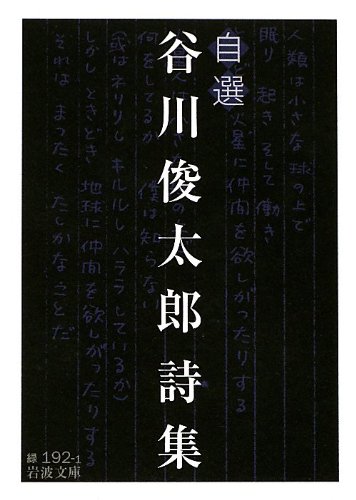 自選
谷川俊太郎詩集
人類は小さな球の上で
眠り 起き そして働き
ときどき火星に仲間を欲しがったりする
火星人は小さな球の上で
何をしてるか 僕は知らない
(或はネリリし キルルし ハララしているか)
しかしときどき地球に仲間を欲しがったりする
それはまったくたしかなことだ
緑 192-1
岩波文庫